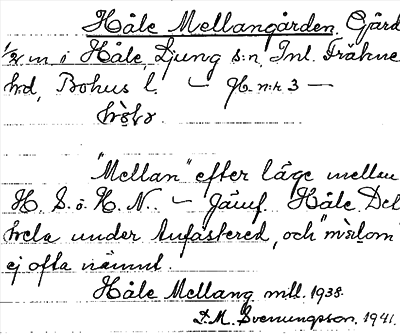 Håle Mellangården. Gård
1/2 m i Håle, Ljung s:n, Inl. Fräkne
hd, Bohus l. — Jb. n:r 3 —
"Mellan" efter läge mellan
H. S. o. H. N. — Jämf. Håle Del
hela under Anfasterød, och
ej ofta nämnt.
Håle Mellang mtl. 1938.
D. M. Svenungsson, 1941.